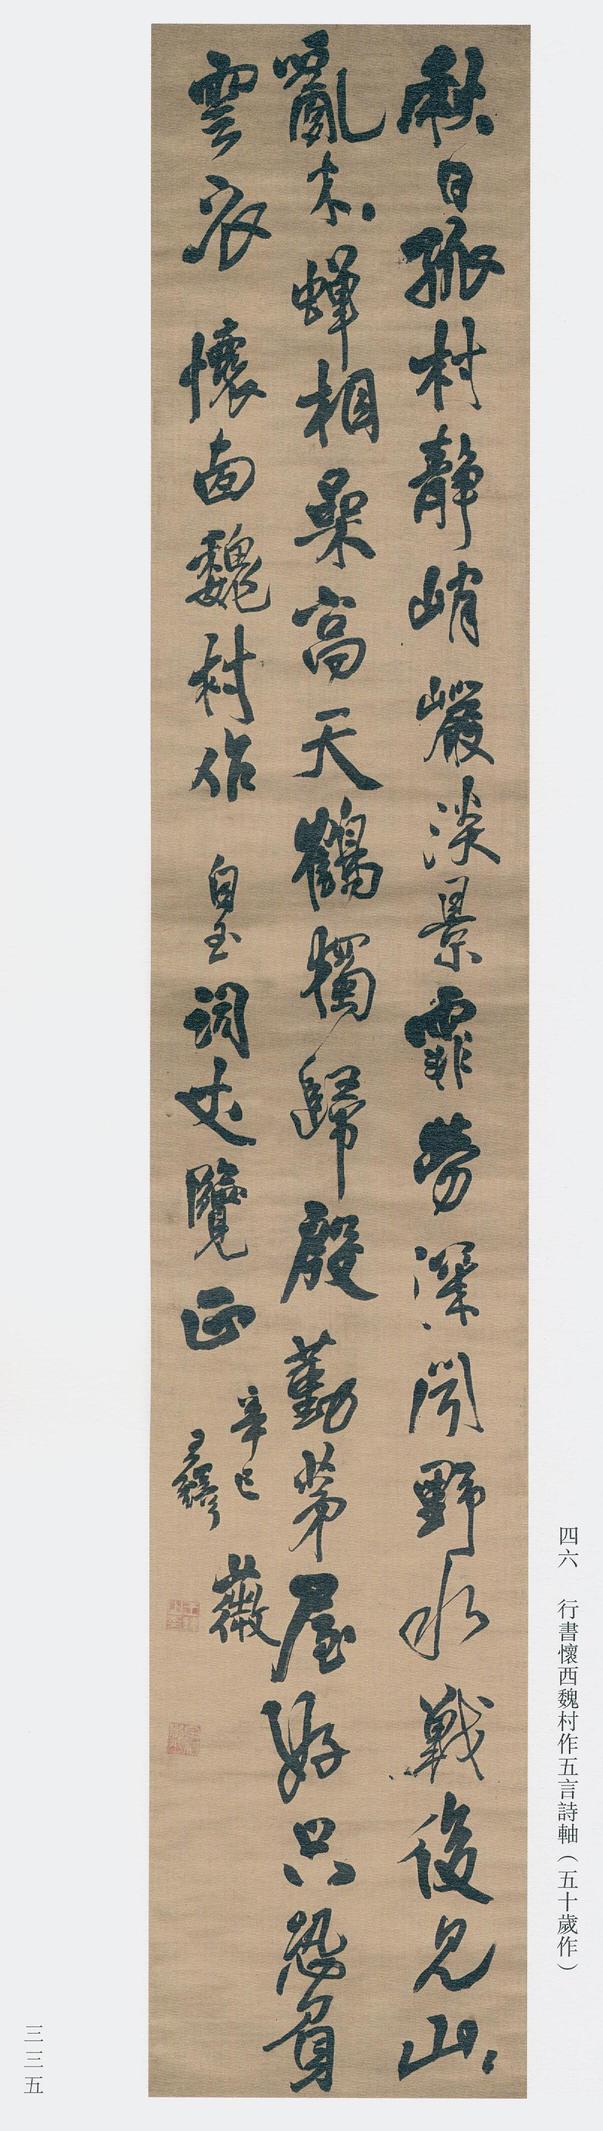 四六　行書懷西魏村作五言詩軸（五十歲作）
秋日孤村靜峭巖淡景霏勞深聞野水戰後見山
亂木蟬相喿高天鶴獨歸殷勤茅屋好只恐負
雲衣　懷西魏村作　詞丈覽正　辛巳　薇
王鐸
三三五